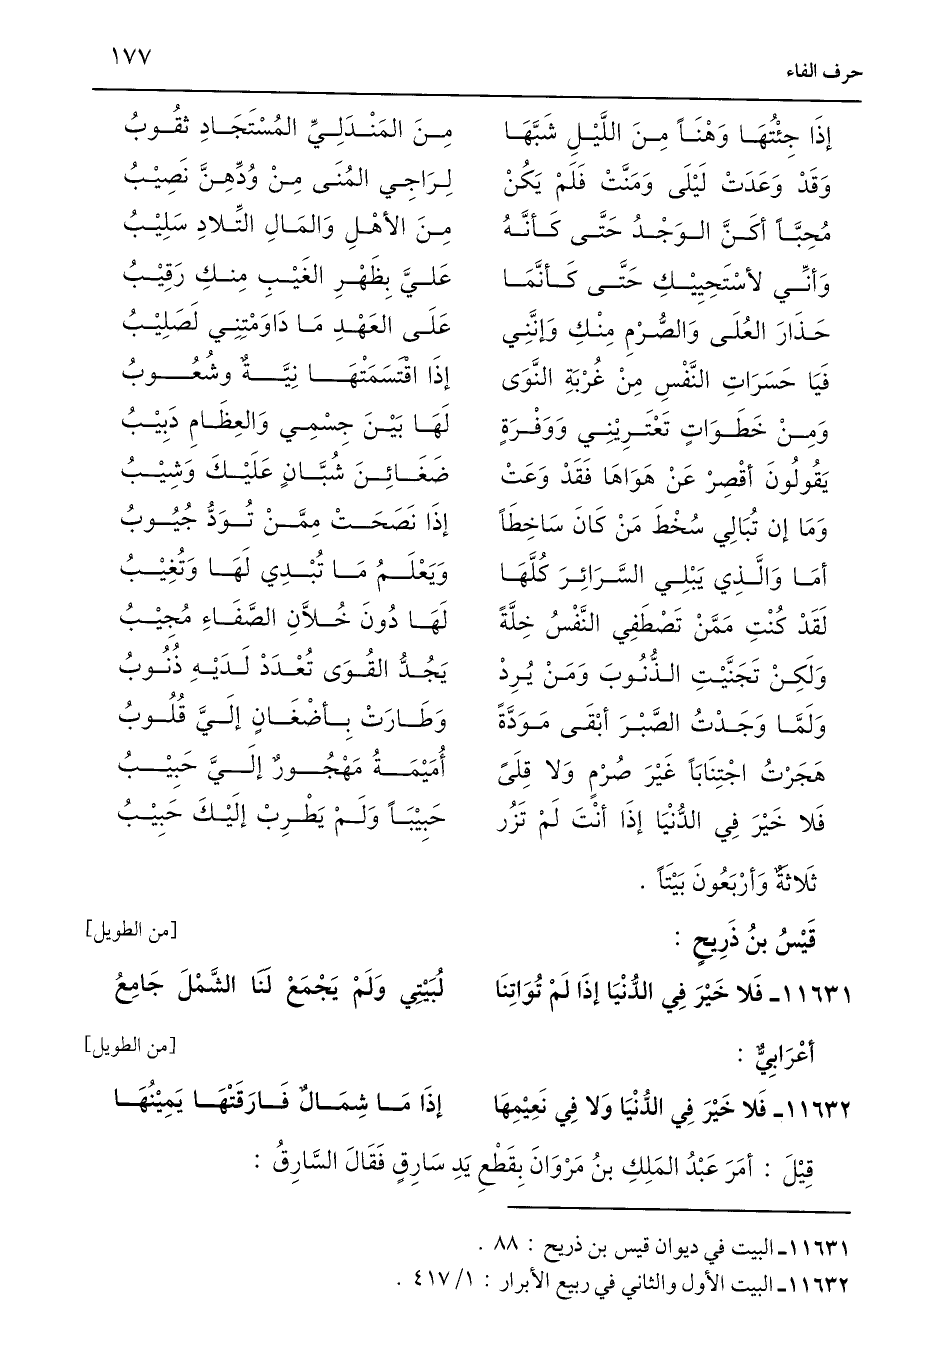 حرف الفاء ١٧٧
إِذَا جِئْتُهَا وَهْنَاً مِنَ اللَّيْلِ شَبَّهَا مِنَ المَنْدَلِيِّ المُسْتَجَادِ ثَقُوبُ
وَقَدْ وَعَدَتْ لَيْلَى وَمَنَّتْ فَلَمْ يَكُنْ لِرَاجِي المُنَى مِنْ وُدِّهِنَّ نَصِيْبُ
مُحِبَّاً أَكَنَّ الوَجْدُ حَتَّى كَأَنَّهُ مِنَ الأَهْلِ وَالمَالِ التِّلَادِ سَلِيْبُ
وَأَنِّي لأَسْتَحِيِيْكِ حَتَّى كَأَنَّمَا عَلَيَّ بِظَهْرِ الغَيْبِ مِنكِ رَقِيْبُ
حَذَارَ العُلَى وَالصُّرْمِ مِنْكِ وَإِنَّنِي عَلَى العَهْدِ مَا دَاوَمْتِنِي لَصَلِيْبُ
فَيَا حَسَرَاتِ النَّفْسِ مِنْ غُرْبَةِ النَّوَى إِذَا اقْتَسَمَتْهَا نِيَّةٌ وشُعُوبُ
وَمِنْ خَطَرَاتٍ تَعْتَرِيْنِي وَوَفْرَةٍ لَهَا بَيْنَ جِسْمِي وَالعِظَامِ دَبِيْبُ
يَقُولُونَ أَقْصِرْ عَنْ هَوَاهَا فَقَدْ وَعَتْ ضَغَائِنَ شُبَّانٍ عَلَيْكَ وَشِيْبُ
وَمَا إِن تُبَالِي سُخْطَ مَنْ كَانَ سَاخِطَاً إِذَا نَصَحَتْ مِمَّنْ تَوَدُّ جُيُوبُ
أَمَا وَالَّذِي يَبْلِي السَّرَائِرَ كُلَّهَا وَيَعْلَمُ مَا تُبْدِي لَهَا وَتُغِيْبُ
لَقَدْ كُنْتِ مَمَّنْ تَصْطَفِي النَّفْسُ خِلَّةً لَهَا دُونَ خُلاَّنِ الصَّفَاءِ مُجِيْبُ
وَلَكِنْ تَجَنَّيْتِ الذُّنُوبَ وَمَنْ يُرِدْ يَجُدُّ القُوَى تُعْدَدْ لَدَيْهِ ذُنُوبُ
وَلَمَّا وَجَدْتُ الصَّبْرَ أَبْقَى مَوَدَّةً وَطَارَتْ بِأَضْغَانٍ إِلَيَّ قُلُوبُ
هَجَرْتُ اجْتِنَابَاً غَيْرَ صُرْمٍ وَلَا قِلَىً أُمَيْمَةُ مَهْجُورٌ إِلَيَّ حَبِيْبُ
فَلا خَيْرَ فِي الدُّنْيَا إِذَا أَنْتَ لَمْ تَزُر حَبِيْبَاً وَلَمْ يَطْرِبْ إِلَيْكَ حَبِيْبُ
ثَلاثَةٌ وَأَرْبَعُونَ بَيْتَاً .
قَيْسُ بنُ ذَرِيحٍ : [من الطويل]
١١٦٣١ـ فَلا خَيْرَ فِي الدُّنْيَا إِذَا لَمْ تُوَاتِنَا لُبَيْنِي وَلَمْ يَجْمَعْ لَنَا الشَّمْلَ جَامِعُ
أَعْرَابِيٌّ : [من الطويل]
١١٦٣٢ـ فَلا خَيْرَ فِي الدُّنْيَا وَلا فِي نَعِيْمِهَا إِذَا مَا شِمَالٌ فَارَقَتْهَا يَمِيْنُهَا
قِيْلَ : أَمَرَ عَبْدُ المَلِكِ بنُ مَرْوَانَ بِقَطْعِ يَدِ سَارِقٍ فَقَالَ السَّارِقُ :
١١٦٣١ـ البيت في ديوان قيس بن ذريح : ٨٨ .
١١٦٣٢ـ البيت الأول والثاني في ربيع الأبرار : ١/ ٤١٧ .